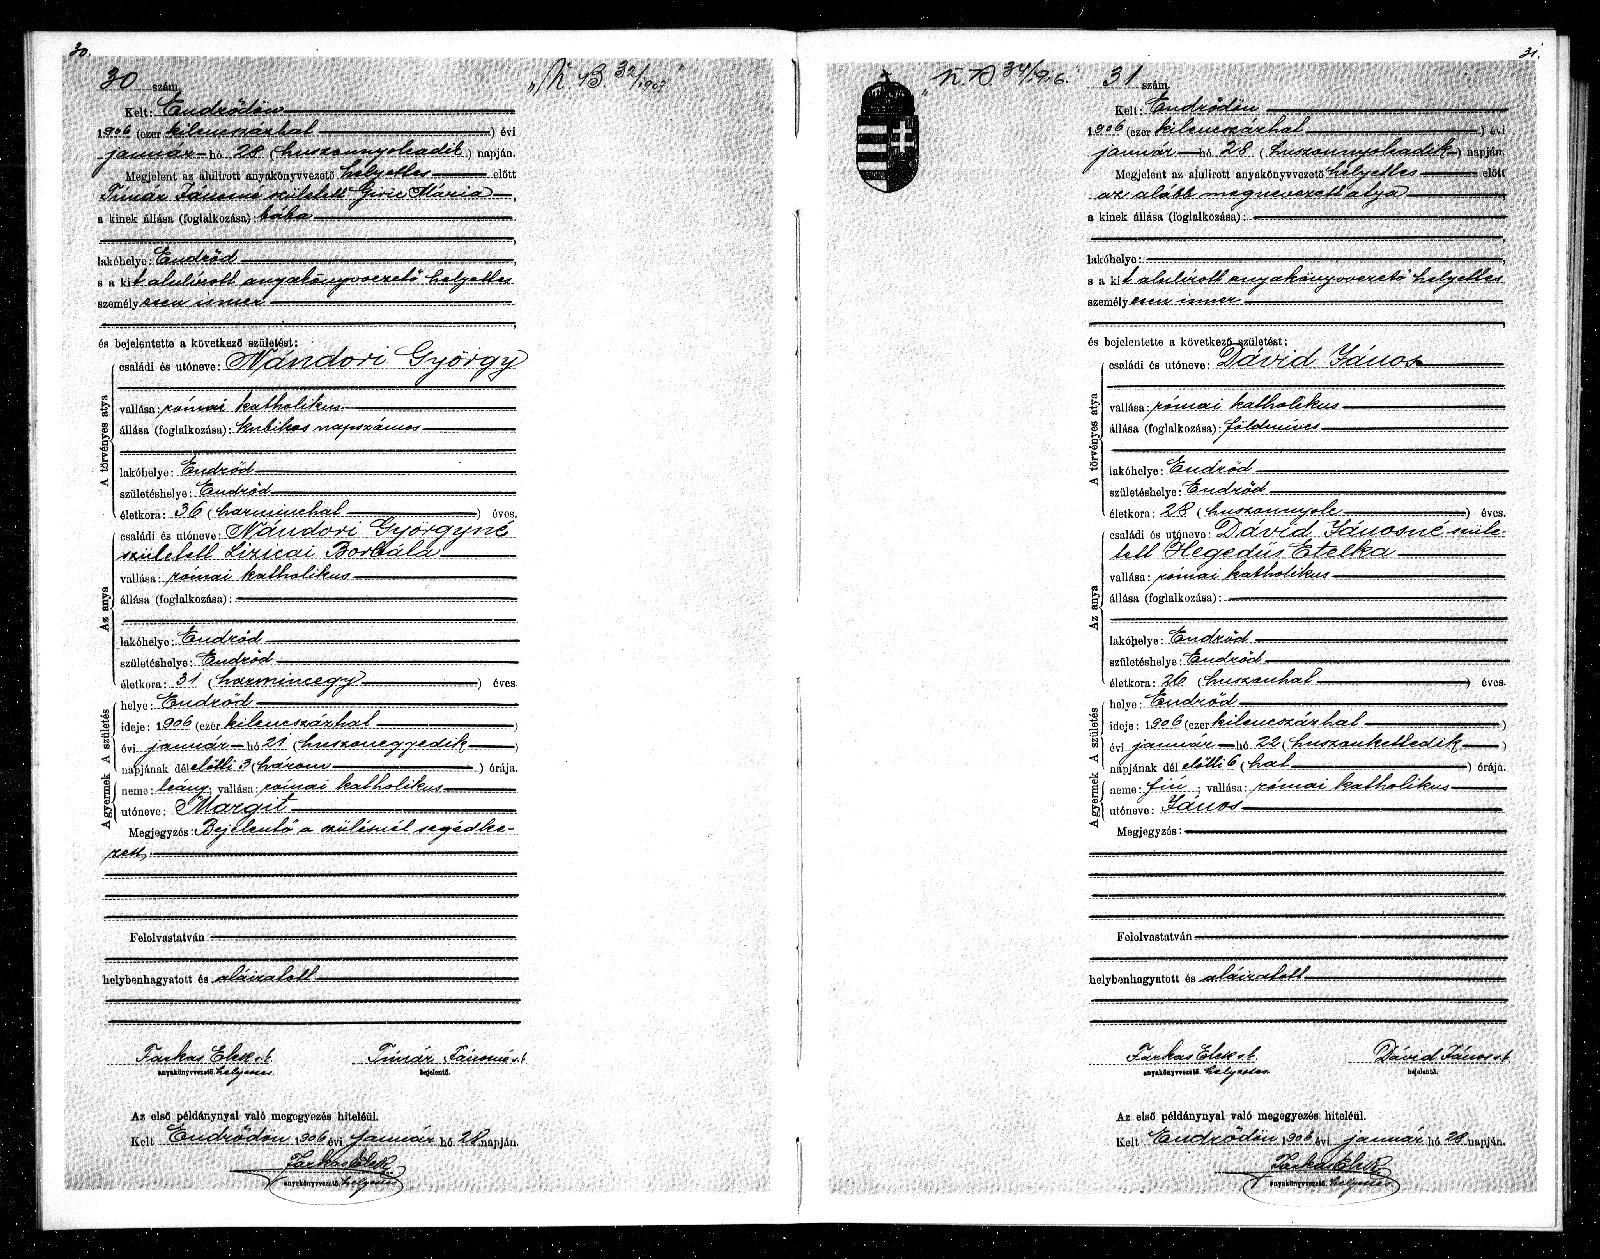 30.
30 szám
Kelt: Endrődön
1906 (ezer kilenczszázhat) évi
január hó 28 (huszonnyolcadik) napján.
Megjelent az alulirott anyakönyvvezető helyettes előtt
Timár Jánosné született Giric Mária,
a kinek állása (foglalkozása): bába
lakóhelye: Endrőd
s a kit alulírott anyakönyvvezető helyettes
személyesen ismer
és bejelentette a következő születést:
A törvényes atya
családi és utóneve: Nándori György
vallása: római katholikus
állása (foglalkozása): kubikos napszámos
lakóhelye: Endrőd
születéshelye: Endrőd
életkora: 36 (harminchat) éves.
Az anya
családi és utóneve: Nándori Györgyné
született Lizicai Borbála
vallása: római katholikus
állása (foglalkozása):
lakóhelye: Endrőd
születéshelye: Endrőd
életkora: 31 (harmincegy) éves.
A születés
helye: Endrőd
ideje: 1906 (ezer kilenczszázhat)
évi január hó 21 (huszonegyedik)
napjának dél előtti 3 (három) órája.
A gyermek
neme: leány; vallása: római katholikus
utóneve: Margit
Megjegyzés: Bejelentő a szülésnél segédke-
zett,
Felolvastatván
helybenhagyatott és aláiratott
Farkas Elek s.k. Timár Jánosné s.k.
anyakönyvvezető helyettes. bejelentő.
Az első példánynyal való megegyezés hiteléül.
Kelt Endrődön 1906 évi január hó 28 napján.
Farkas Elek
anyakönyvvezető helyettes
31.
31 szám.
Kelt: Endrődön
1906 (ezer kilenczszázhat) évi
január hó 28 (huszonnyolcadik) napján.
Megjelent az alulirott anyakönyvvezető helyettes előtt
az alább megnevezett atya
a kinek állása (foglalkozása):
lakóhelye:
s a kit alulírott anyakönyvvezető helyettes
személyesen ismer
és bejelentette a következő születést:
A törvényes atya
családi és utóneve: Dávid János
vallása: római katholikus
állása (foglalkozása): földmíves
lakóhelye: Endrőd
születéshelye: Endrőd
életkora: 28 (huszonnyolc) éves.
Az anya
családi és utóneve: Dávid Jánosné szüle-
tett Hegedüs Etelka
vallása: római katholikus
állása (foglalkozása):
lakóhelye: Endrőd
születéshelye: Endrőd
életkora: 26 (huszonhat) éves.
A születés
helye: Endrőd
ideje: 1906 (ezer kilenczszázhat)
évi január hó 22 (huszonkettedik)
napjának dél előtti 6 (hat) órája.
A gyermek
neme: fiú; vallása: római katholikus
utóneve: János
Megjegyzés:
Felolvastatván
helybenhagyatott és aláiratott
Farkas Elek s.k. Dávid János s.k.
anyakönyvvezető helyettes. bejelentő.
Az első példánynyal való megegyezés hiteléül.
Kelt Endrődön 1906 évi január hó 28 napján.
Farkas Elek
anyakönyvvezető helyettes